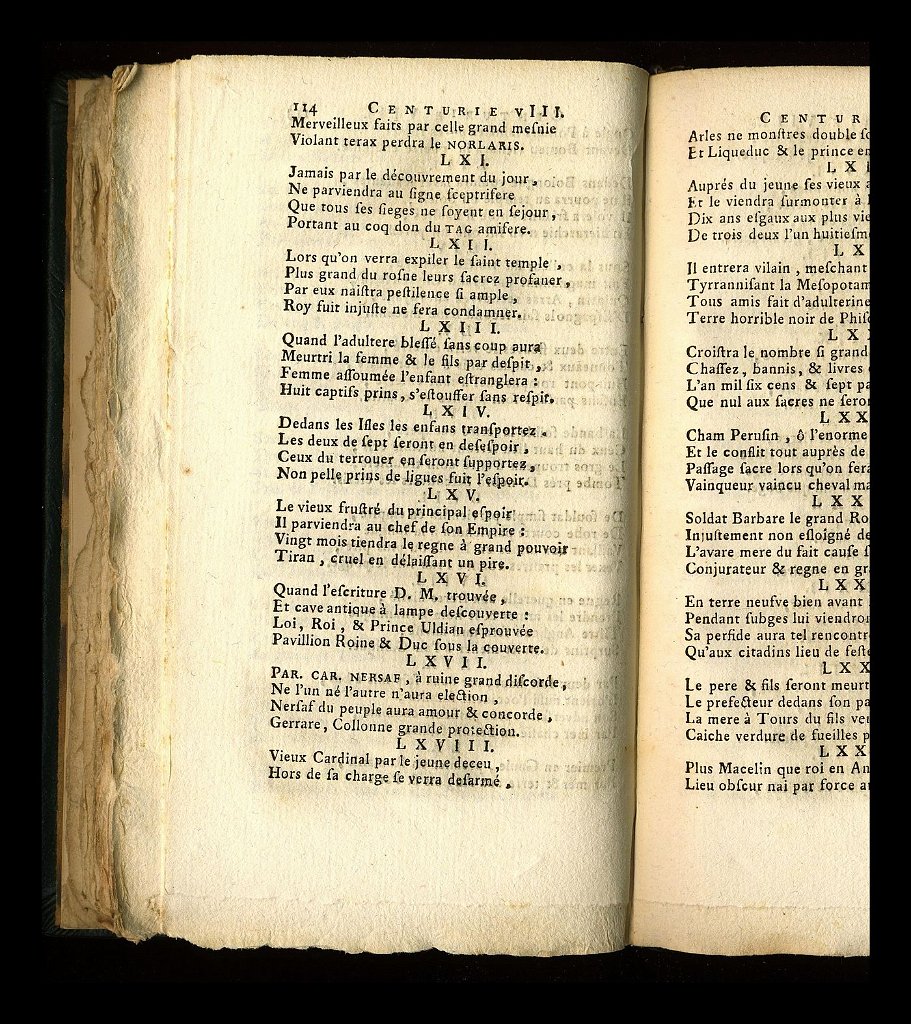 114 CENTURIE VIII.
Merveilleux faits par celle grand meſnie
Violant terax perdra le NORLARIS.
LXI.
Jamais par le découvrement du jour,
Ne parviendra au ſigne ſceptriſere
Que tous ſes ſieges ne ſoyent en ſejour,
Portant au coq don du TAG amiſere.
LXII.
Lors qu'on verra expiler le ſaint temple,
Plus grand du roſne leurs ſacrez profaner,
Par eux naiſtra peſtilence ſi ample,
Roy fuit injuſte ne fera condamner.
LXIII.
Quand l'adultere bleſſé ſans coup aura
Meurtri la femme & le fils par deſpit,
Femme aſſoumée l'enfant eſtranglera :
Huit captifs prins, s'eſtouffer ſans reſpit.
LXIV.
Dedans les Iſles les enfans tranſportez.
Les deux de ſept ſeront en deſeſpoir,
Ceux du terrouer en ſeront ſupportez,
Non pelle prins de ligues fuit l'eſpoir.
LXV.
Le vieux fruſtré du principal eſpoir
Il parviendra au chef de ſon Empire :
Vingt mois tiendra le regne à grand pouvoir
Tiran, cruel en délaiſſant un pire.
LXVI.
Quand l'eſcriture D. M. trouvée,
Et cave antique à lampe deſcouverte :
Loi, Roi, & Prince Uldian eſprouvée
Pavillion Roine & Duc ſous la couverte.
LXVII.
PAR. CAR. NERSAF, à ruine grand diſcorde,
Ne l'un né l'autre n'aura election,
Nerſaf du peuple aura amour & concorde,
Gerrare, Collonne grande protection.
LXVIII.
Vieux Cardinal par le jeune deceu,
Hors de ſa charge ſe verra deſarmé,
CENTUR
Arles ne monſtres double ſo
Et Liqueduc & le prince em
LXI
Auprés du jeune ſes vieux a
Et le viendra ſurmonter à
Dix ans eſgaux aux plus vie
De trois deux l'un huitieſm
LX
Il entrera vilain, meſchant
Tyrranniſant la Meſopotam
Tous amis fait d'adulterine
Terre horrible noir de Phiſo
LX
Croiſtra le nombre ſi grand
Chaſſez, bannis, & livres
L'an mil ſix cens & ſept pa
Que nul aux ſacres ne ſero
LXX
Cham Peruſin, ô l'enorme
Et le conflit tout auprès de
Paſſage ſacre lors qu'on fera
Vainqueur vaincu cheval ma
LXX
Soldat Barbare le grand Ro
Injuſtement non eſloigné de
L'avare mere du fait cauſe ſ
Conjurateur & regne en gr
LXX
En terre neufve bien avant
Pendant ſubges lui viendro
Sa perfide aura tel rencontr
Qu'aux citadins lieu de feſte
LXX
Le pere & fils ſeront meurt
Le prefecteur dedans ſon pa
La mere à Tours du fils ve
Caiche verdure de fueilles p
LXX
Plus Macelin que roi en An
Lieu obſcur nai par force a